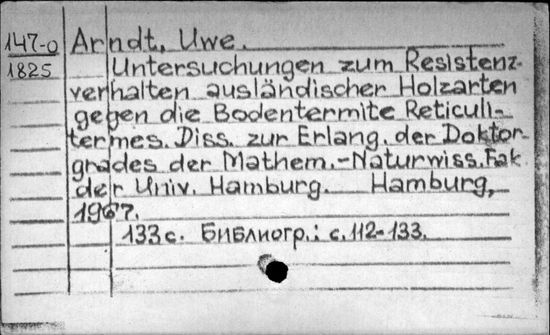 147-0 Arndt, Uwe.
1825 Untersuchungen zum Resistenz-
verhalten ausländischer Holzarten
gegen die Bodentermite Reticuli-
termes. Diss. zur Erlang. der Doktor-
grades der Mathem.-Naturwiss. Fak.
der Univ. Hamburg. Hamburg,
1967.
133 c. Библиогр.: с. 112-133.